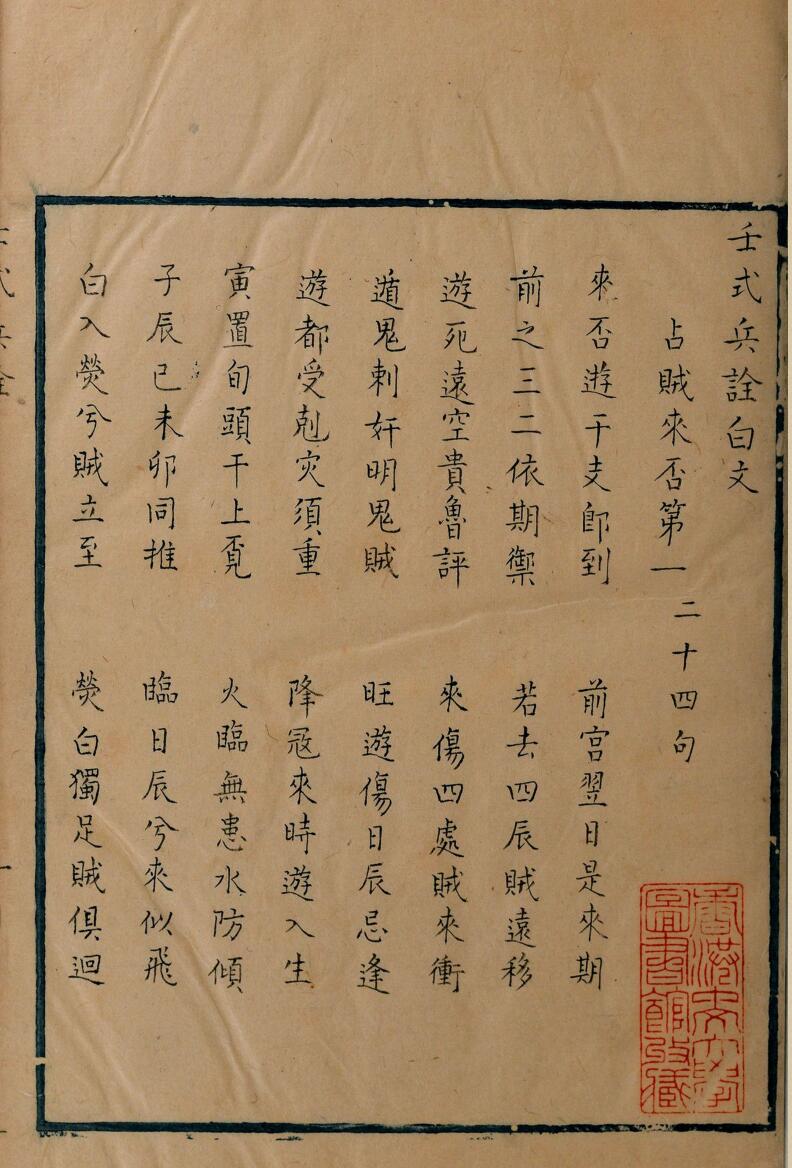 壬式兵詮白文
占賊來否第一 二十四句
來否遊干支卽到 前宮翌日是來期
前之三二依期禦 若去四辰賊遠移
遊死遠空貴魯評 來傷四處賊來衝
遁鬼剌奸明鬼賊 旺遊傷日辰忌逢
遊都受剋灾須重 降冦來時遊入生
寅置旬頭干上覔 火臨無患水防傾
子辰巳未卯同推 臨日辰兮來似飛
白入熒兮賊立至 熒白獨足賊俱迴
香港中文大學圖書館收藏